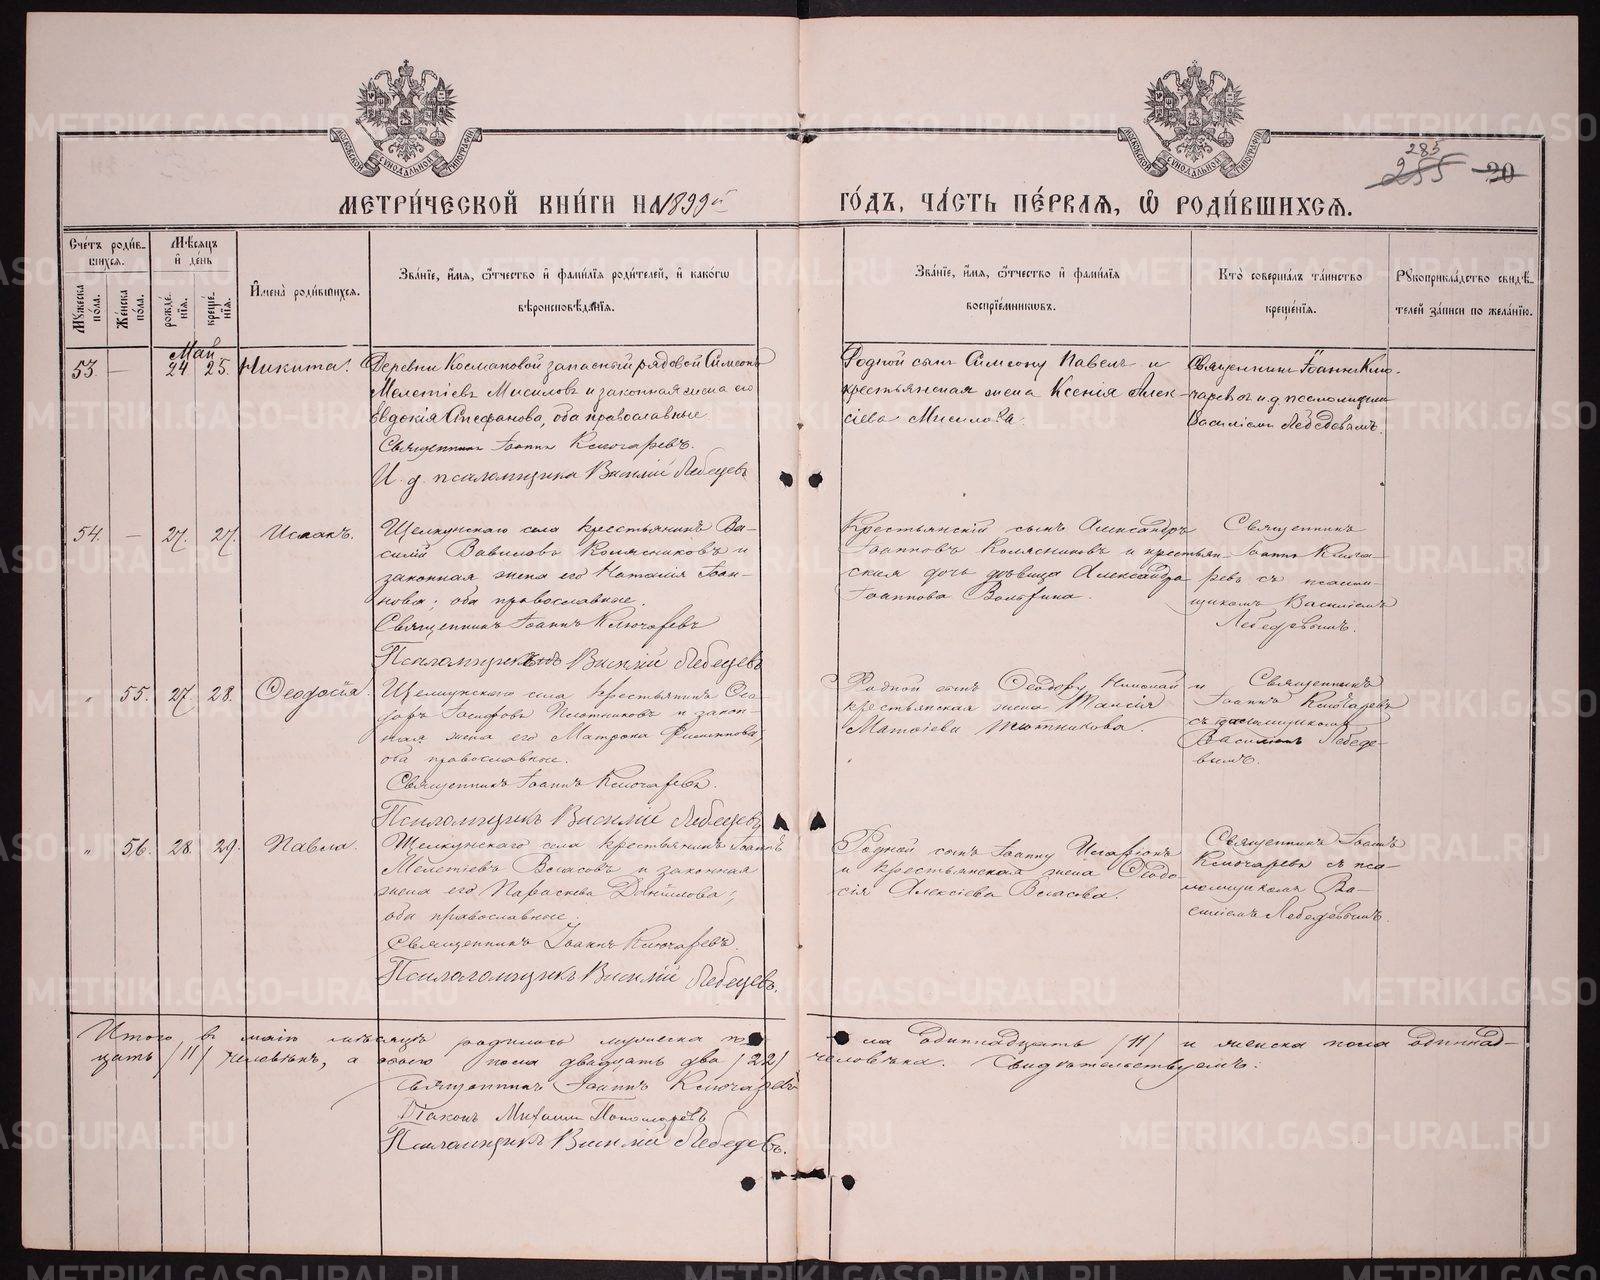 МОСКОВСКОЙ СѴНОДАЛЬНОЙ ТИПОГРАФІИ
МОСКОВСКОЙ СѴНОДАЛЬНОЙ ТИПОГРАФІИ
285
255 20
МЕТРИ́ЧЕСКОЙ КНИ́ГИ НА 1899й ГО́ДЪ, ЧА́СТЬ ПЕ́РВАЯ, Ѡ҆ РОДИ́ВШИХСЯ.
Сче́тъ роди́в-
шихся.
Му́жеска по́ла.
Же́нска по́ла.
Мѣ́сяцъ
и҆ де́нь
рожде́-
нія.
креще́-
нія.
И҆мена̀ роди́вшихся.
Зва́нїе, и҆́мя, ѻ҆́тчество и҆ фами́лїя роди́телей, и҆ како́гѡ
вѣроисповѣ́данїя.
Зва́нїе, и҆́мя, ѻ҆́тчество и҆ фами́лїя
воспрїе́мникѡвъ.
Кто̀ соверша́лъ та́инство
креще́нїя.
Рꙋкоприкла́дство свидѣ́-
телей за́писи по жела́нїю.
Май
53. — 24 25. Никита.
Деревни Космаковой запасный рядовой Симеонъ
Мелетіевъ Мисиловъ и законная жена его
Евдокія Стефанова, оба православные
Священникъ Іоаннъ Ключаревъ.
И. д. псаломщика Василій Лебедевъ
Родной сынъ Симеону Павелъ и
крестьянская жена Ксенія Алек-
сіева Мисилова.
Священникъ Іоаннъ Клю-
чаревъ и.д. псаломщика
Василіемъ Лебедевымъ
54. — 27. 27. Исаакъ.
Щелкунскаго села крестьянинъ Ва-
силій Вавиловъ Колясниковъ и
законная жена его Наталія Іоан-
нова; оба православные.
Священникъ Іоаннъ Ключаревъ
Псаломщикъ Василій Лебедевъ
Крестьянскій сынъ Александръ
Іоанновъ Колясниковъ и крестьян-
ская дочь дѣвица Александра
Іоаннова
Священникъ
Іоаннъ Ключа-
ревъ съ псалом-
щикомъ Василіемъ
Лебедевымъ.
" 55. 27. 28. Ѳеодосія.
Щелкунскаго села крестьянинъ Ѳео-
доръ Іосифовъ Плотниковъ и закон-
ная жена его Матрона Филиппова,
оба православные.
Священникъ Іоаннъ Ключаревъ.
Псаломщикъ Василій Лебедевъ
Родной сынъ Ѳеодору Николай и
крестьянская жена Таисія
Матѳіева Плотникова.
Священникъ
Іоаннъ Ключаревъ
съ псаломщикомъ
Василіемъ Лебеде-
вымъ.
" 56. 28. 29. Павла.
Щелкунскаго села крестьянинъ Іоаннъ
Мелетіевъ Власовъ и законная
жена его Параскева Даніилова;
оба православные.
Священникъ Іоаннъ Ключаревъ.
Псаломщикъ Василій Лебедевъ.
Родной сынъ Іоанну Иларіонъ
и крестьянская жена Ѳеодо-
сія Алексіева Власова.
Священникъ Іоаннъ
Ключаревъ съ пса-
ломщикомъ Ва-
силіемъ Лебедевымъ.
Итого въ маѣ мѣсяцѣ родилось мужеска пола одиннадцать /11/ и женска пола одиннад-
цать /11/ человѣкъ, а обоего пола двадцать два /22/ человѣка. Свидѣтельствуемъ:
Священникъ Іоаннъ Ключаревъ
Діаконъ Михаилъ Пономаревъ
Псаломщикъ Василій Лебедевъ.
METRIKI.GASO-URAL.RU